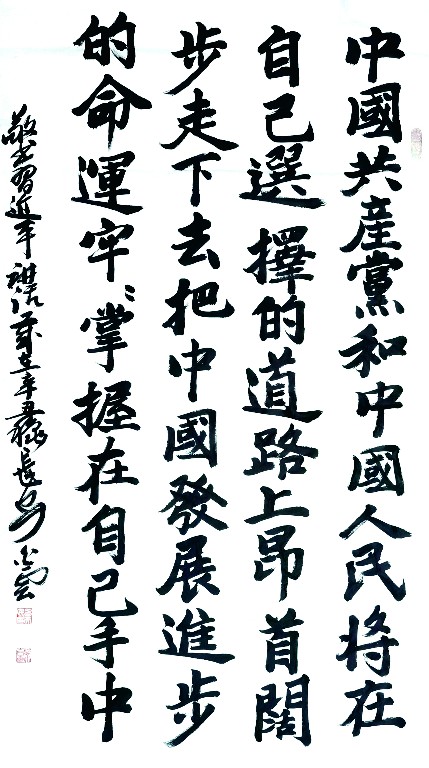 中國共産黨和中國人民將在
自己選擇的道路上昂首闊
步走下去把中國發展進步
的命運牢〻掌握在自己手中
敬書習近平 歲在辛丑 長安